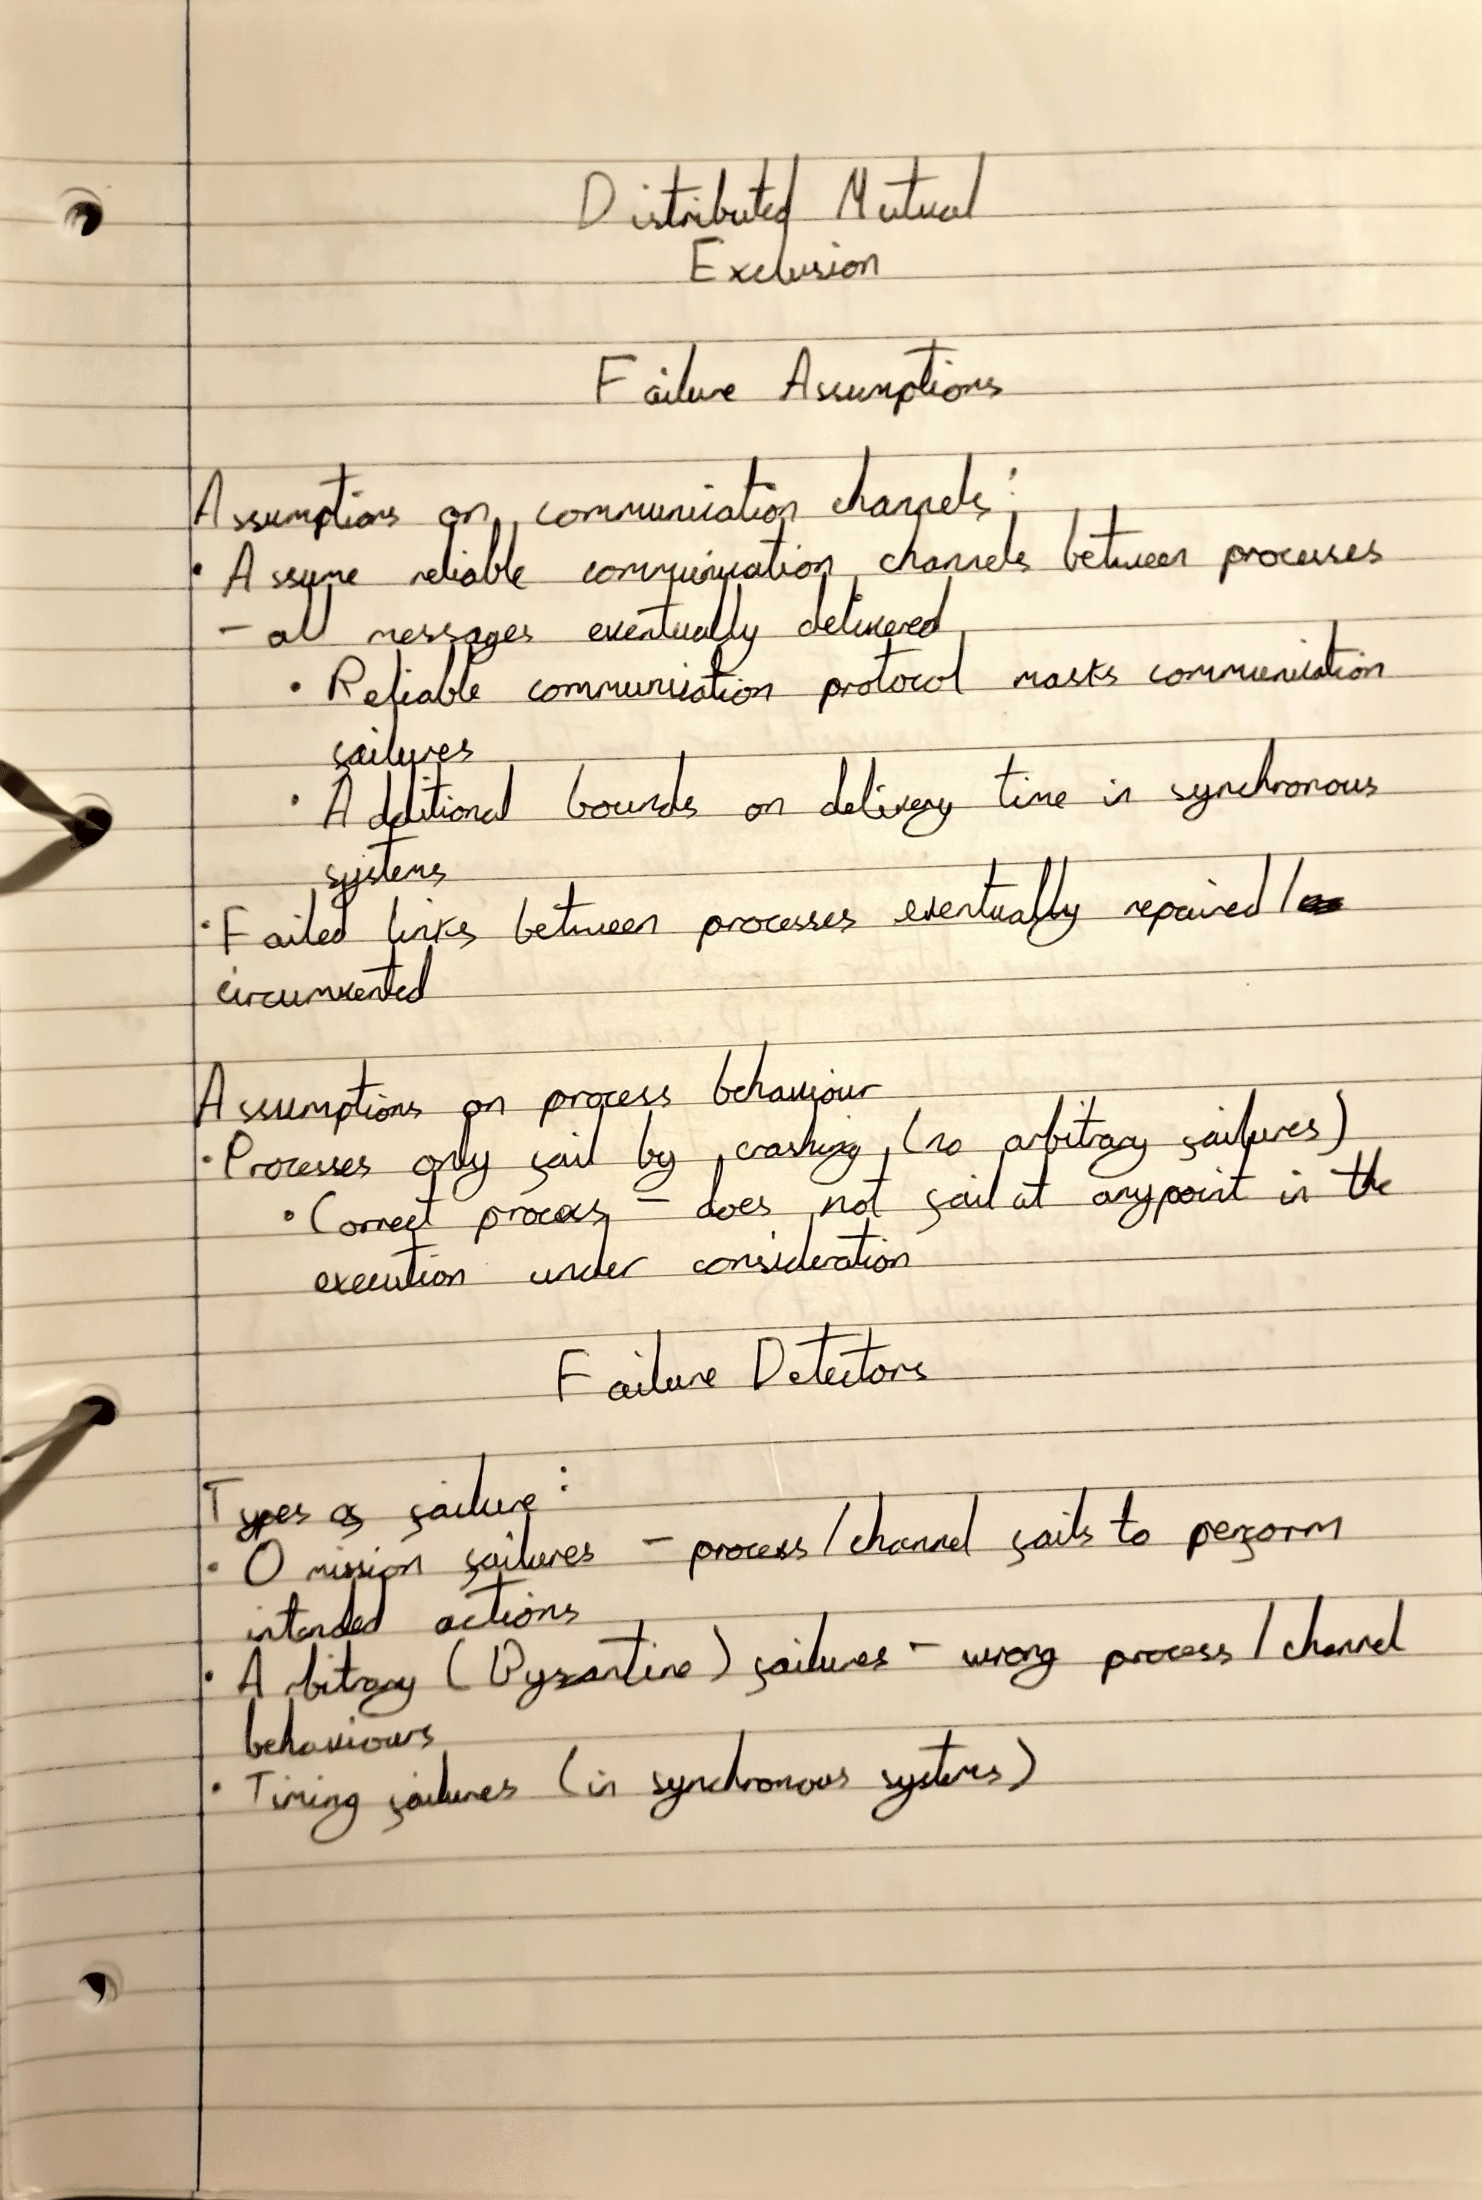 Distributed Mutual
Exclusion
Failure Assumptions
Assumptions on communication channels:
• Assume reliable communication channels between processes
– all messages eventually delivered
• Reliable communication protocol masks communication
failures
• Additional bounds on delivery time in synchronous
systems
• Failed links between processes eventually repaired /
circumvented
Assumptions on process behaviour
• Processes only fail by crashing (no arbitrary failures)
• Correct process – does not fail at any point in the
execution under consideration
Failure Detectors
Types of failure:
• Omission failures – process / channel fails to perform
intended actions
• Arbitrary (Byzantine) failures – wrong process / channel
behaviours
• Timing failures (in synchronous systems)